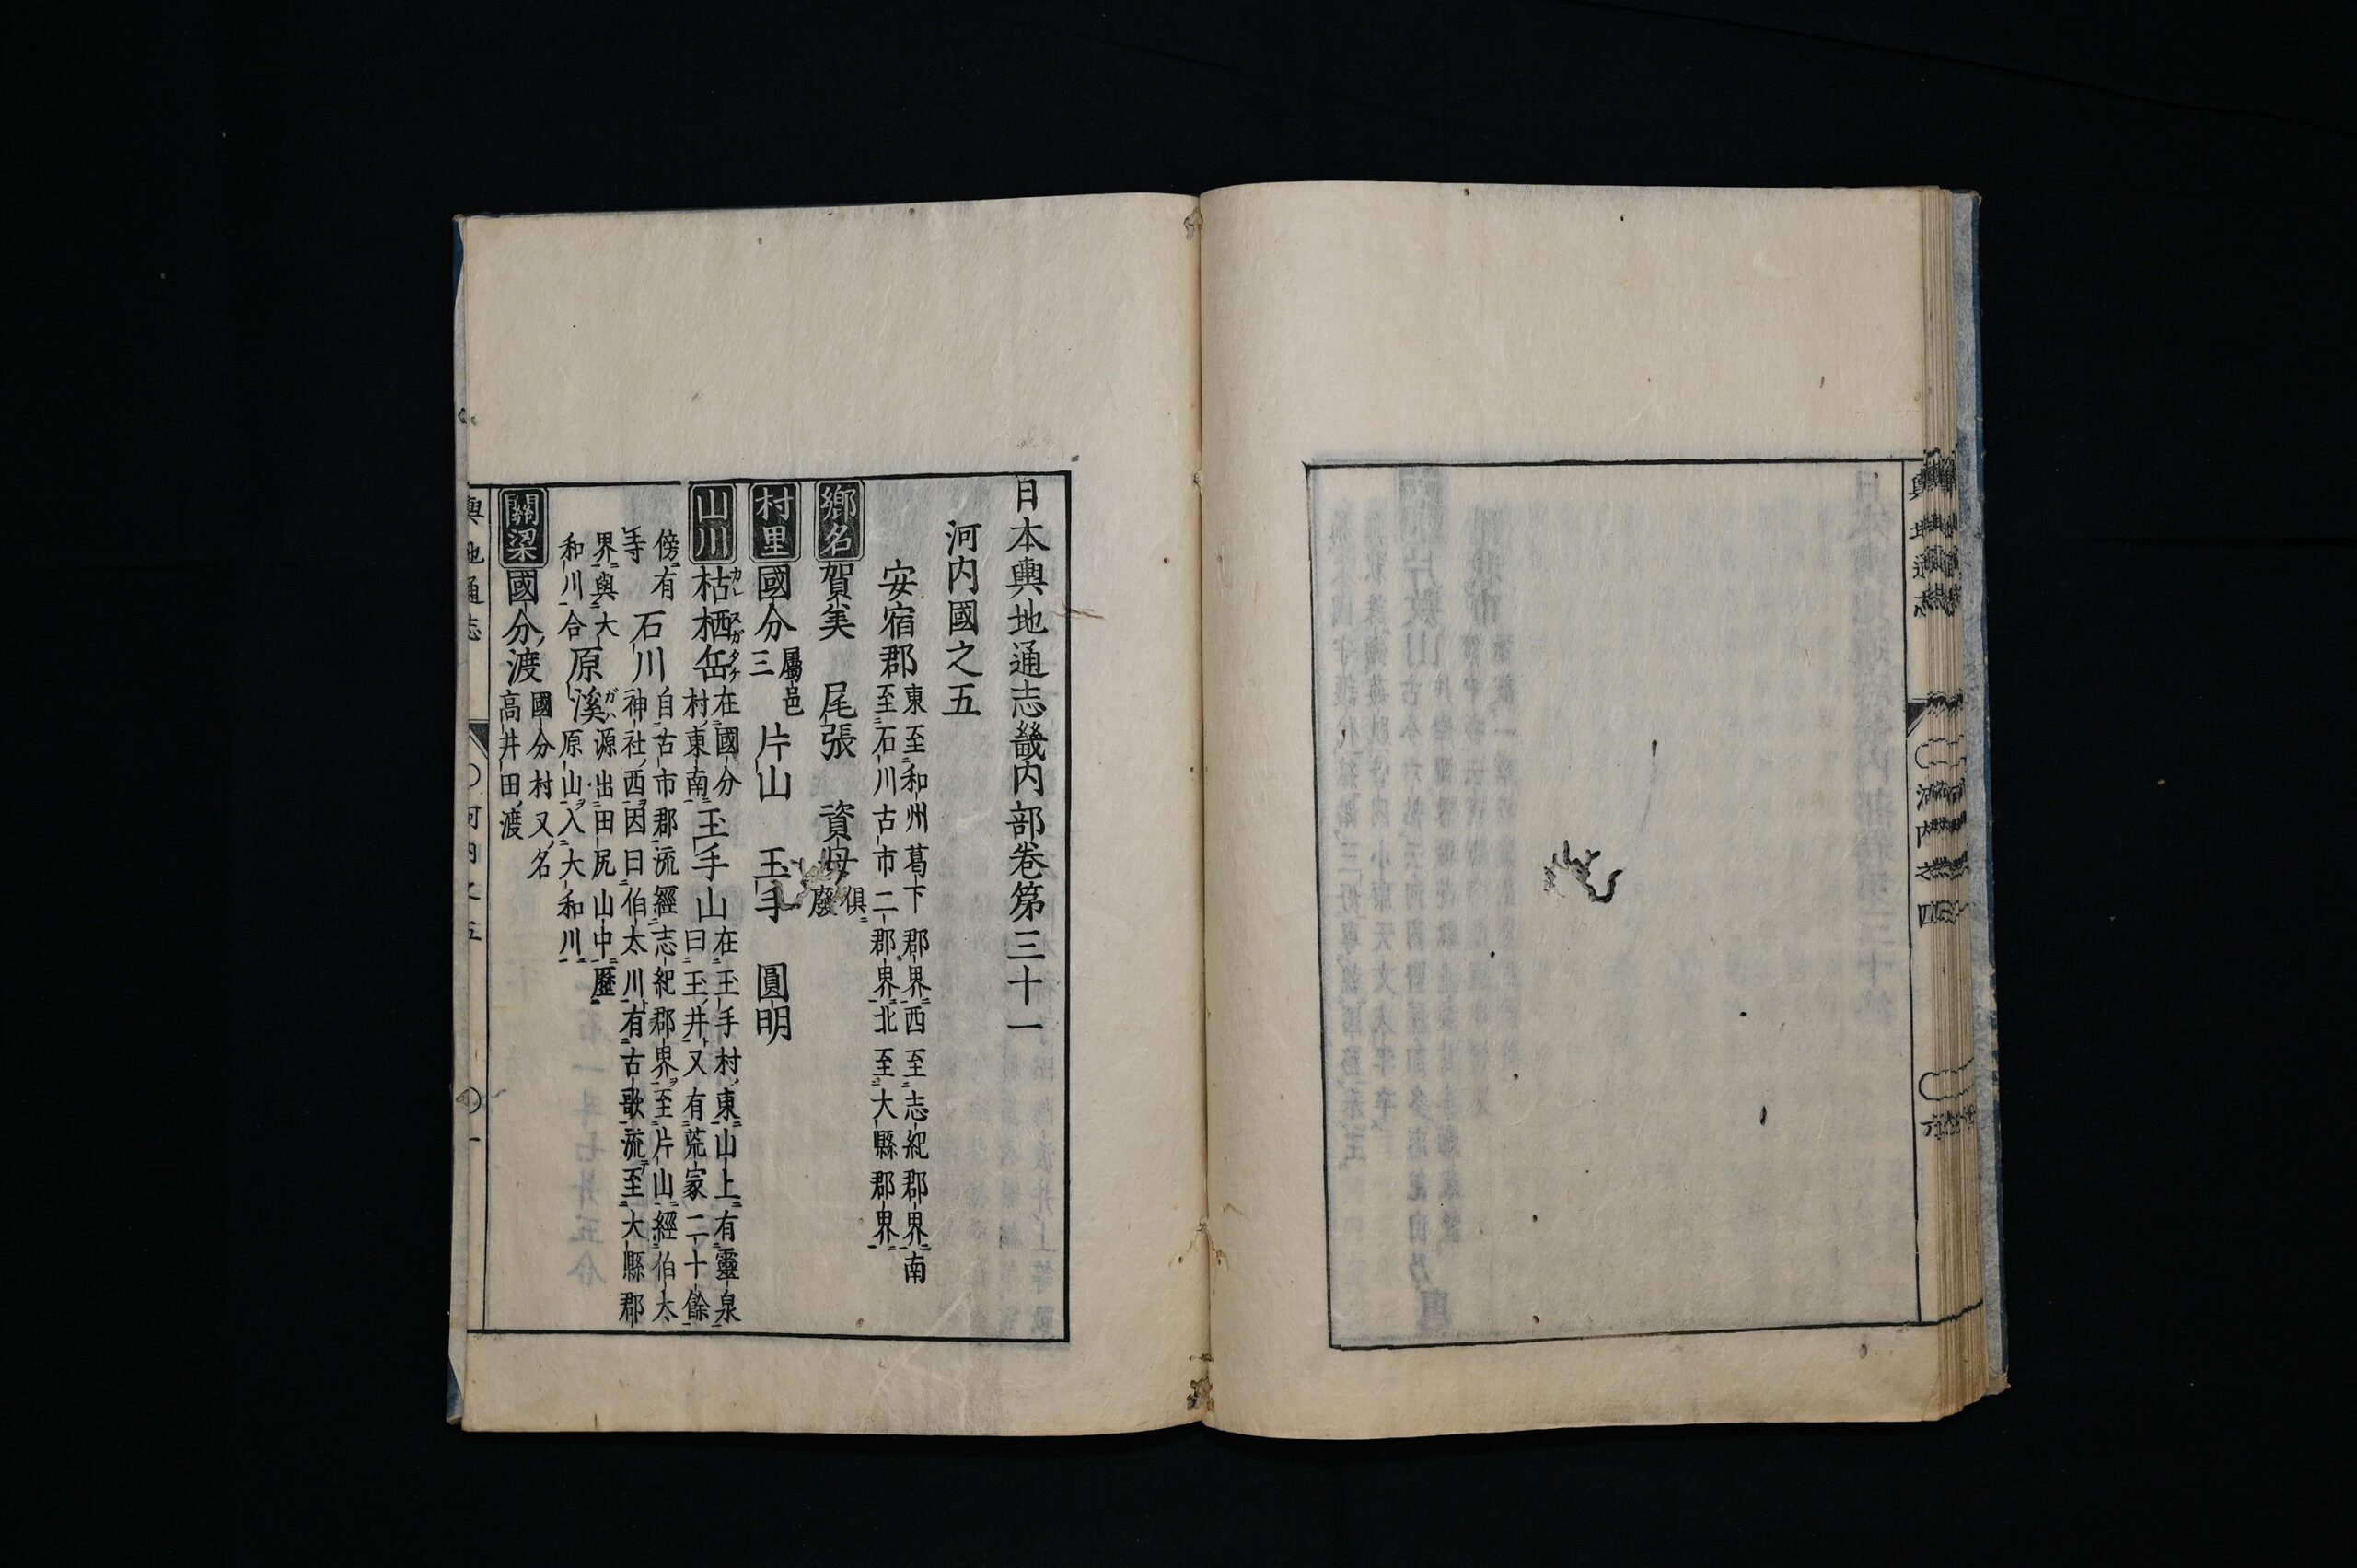 日本輿地通志畿内部卷第三十一
河内國之五
安宿郡 東至和州葛下郡界西至志紀郡界南
至石川古市二郡界北至大縣郡界
鄉名 賀美 尾張 資母 俱
廢
村里 國分 屬邑
三 片山 玉手 圓明
山川 枯栖岳 在國分
村東南 玉手山 在玉手村東山上有靈泉
曰玉井又有荒冢二十餘
傍有
寺 石川 自古市郡流經志紀郡界至片山經伯太
神社西因曰伯太川有古歌流至大縣郡
界與大
和川合 原溪 源出田尻山中歷
原山入大和川
關梁 國分渡 國分村又名
高井田渡
輿地通志 河内之五 一
輿地通志 河内之四 六